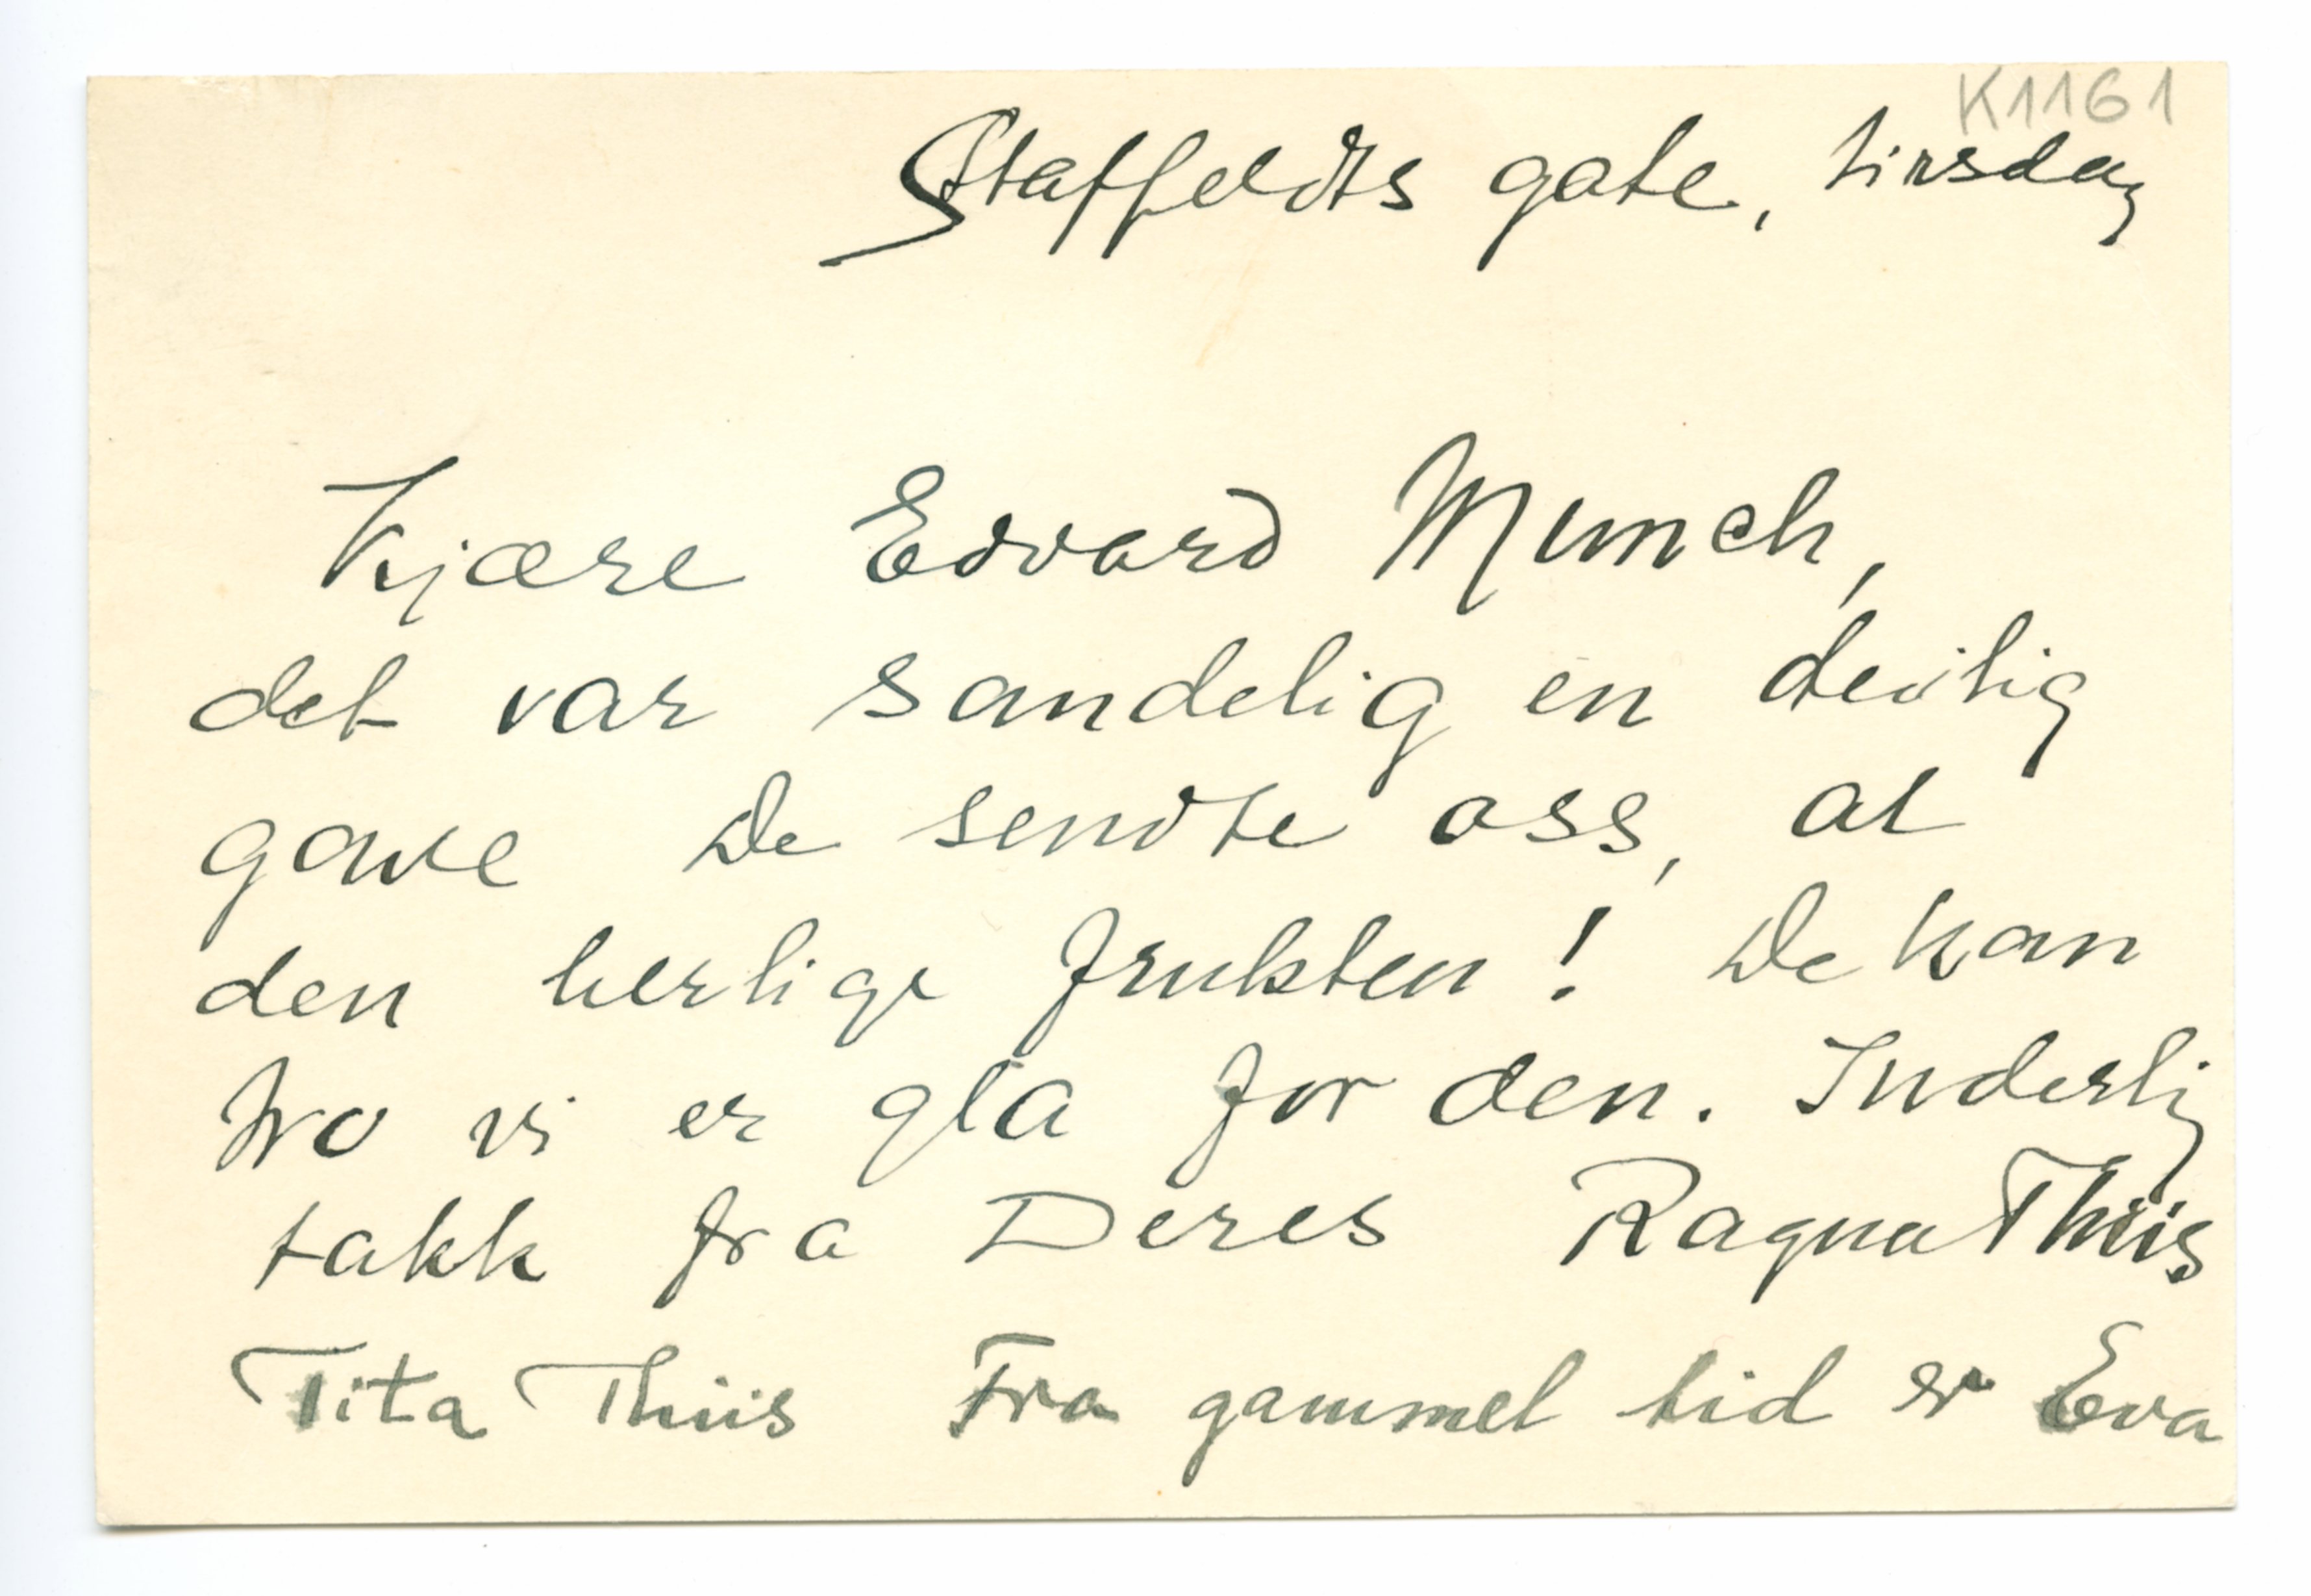 K1161
Staffeldts gate, tirsdag
Kjære Edvard Munch,
det var sandelig en deilig
gave De sendte oss, al
den herlige frukten! De kan
tro vi er gla for den. Inderlig
takk fra Deres Ragna Thiis
Tita Thiis Fra gammel tid er Eva